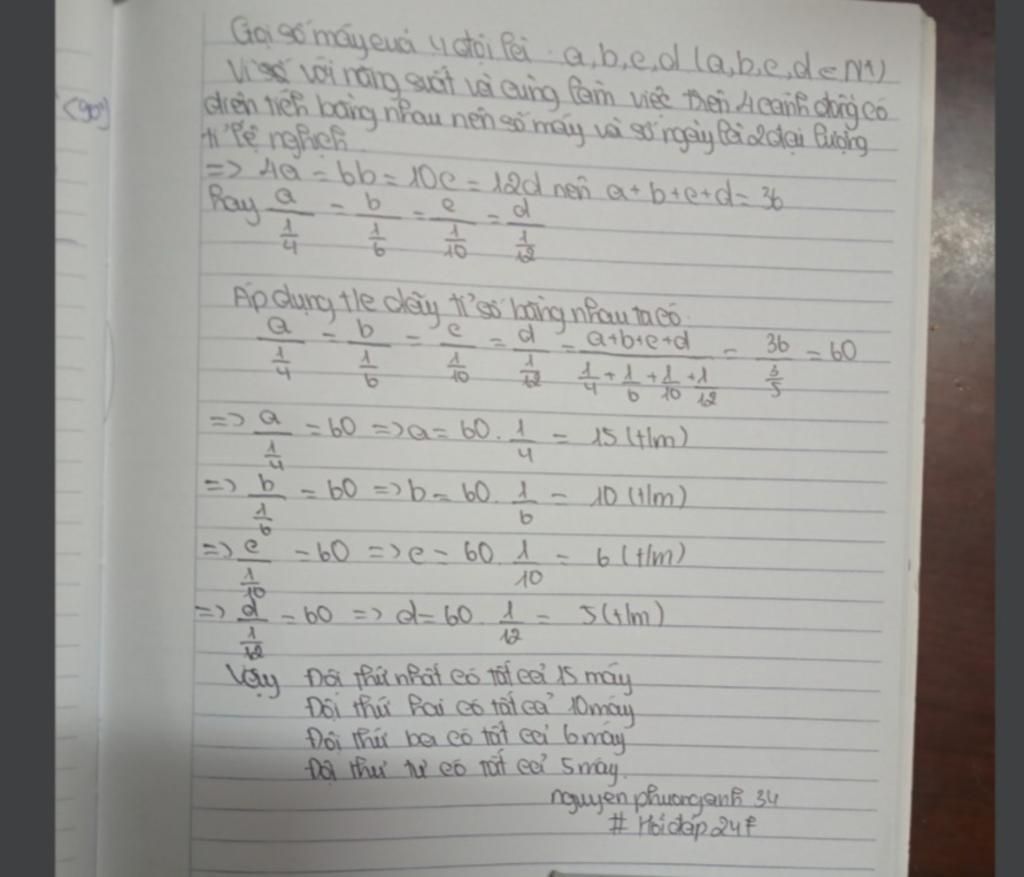 Gọi số máy của 4 đội là a, b, c, d (a, b, c, d ∈ N*)
(90)
Vì số với năng suất và cùng làm việc trên 4 cánh đồng có
diện tích bằng nhau nên số máy và số ngày là 2 đại lượng
tỉ lệ nghịch.
=> 4a = 6b = 10c = 12d nên a + b + c + d = 36
hay a/(1/4) = b/(1/6) = c/(1/10) = d/(1/12)
Áp dụng t/c dãy tỉ số bằng nhau ta có
a/(1/4) = b/(1/6) = c/(1/10) = d/(1/12) = (a+b+c+d)/(1/4 + 1/6 + 1/10 + 1/12) = 36/(3/5) = 60
=> a/(1/4) = 60 => a = 60 . 1/4 = 15 (t/m)
=> b/(1/6) = 60 => b = 60 . 1/6 = 10 (t/m)
=> c/(1/10) = 60 => c = 60 . 1/10 = 6 (t/m)
=> d/(1/12) = 60 => d = 60 . 1/12 = 5 (t/m)
Vậy Đội thứ nhất có tất cả 15 máy
Đội thứ hai có tất cả 10 máy
Đội thứ ba có tất cả 6 máy
Đội thứ tư có tất cả 5 máy.
nguyenphuonganh 34
# Hoidap247